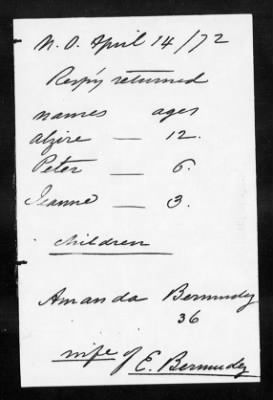 N. O. April 14/72
Resp'y returned
names ages
Alzire — 12.
Peter — 6.
Jeanne — 3.
children
Amanda Bermudez
36
wife of E. Bermudez